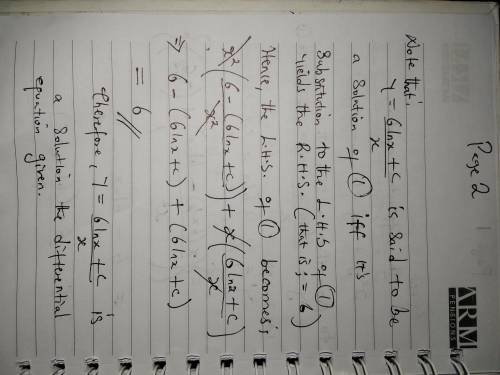 Page 2
Note that;
y = 6lnx + c / x is said to be
a solution of ① iff it's
substitution to the L.H.S of ①
yields the R.H.S. (that is; = 6)
Hence, the L.H.S. of ① becomes;
x² (6 - (6lnx + c) / x²) + x (6lnx + c / x)
⇒ 6 - (6lnx + c) + (6lnx + c)
= 6 //
Therefore, y = 6lnx + c / x is
a solution the differential
equation given.
ARM
PENSIONS